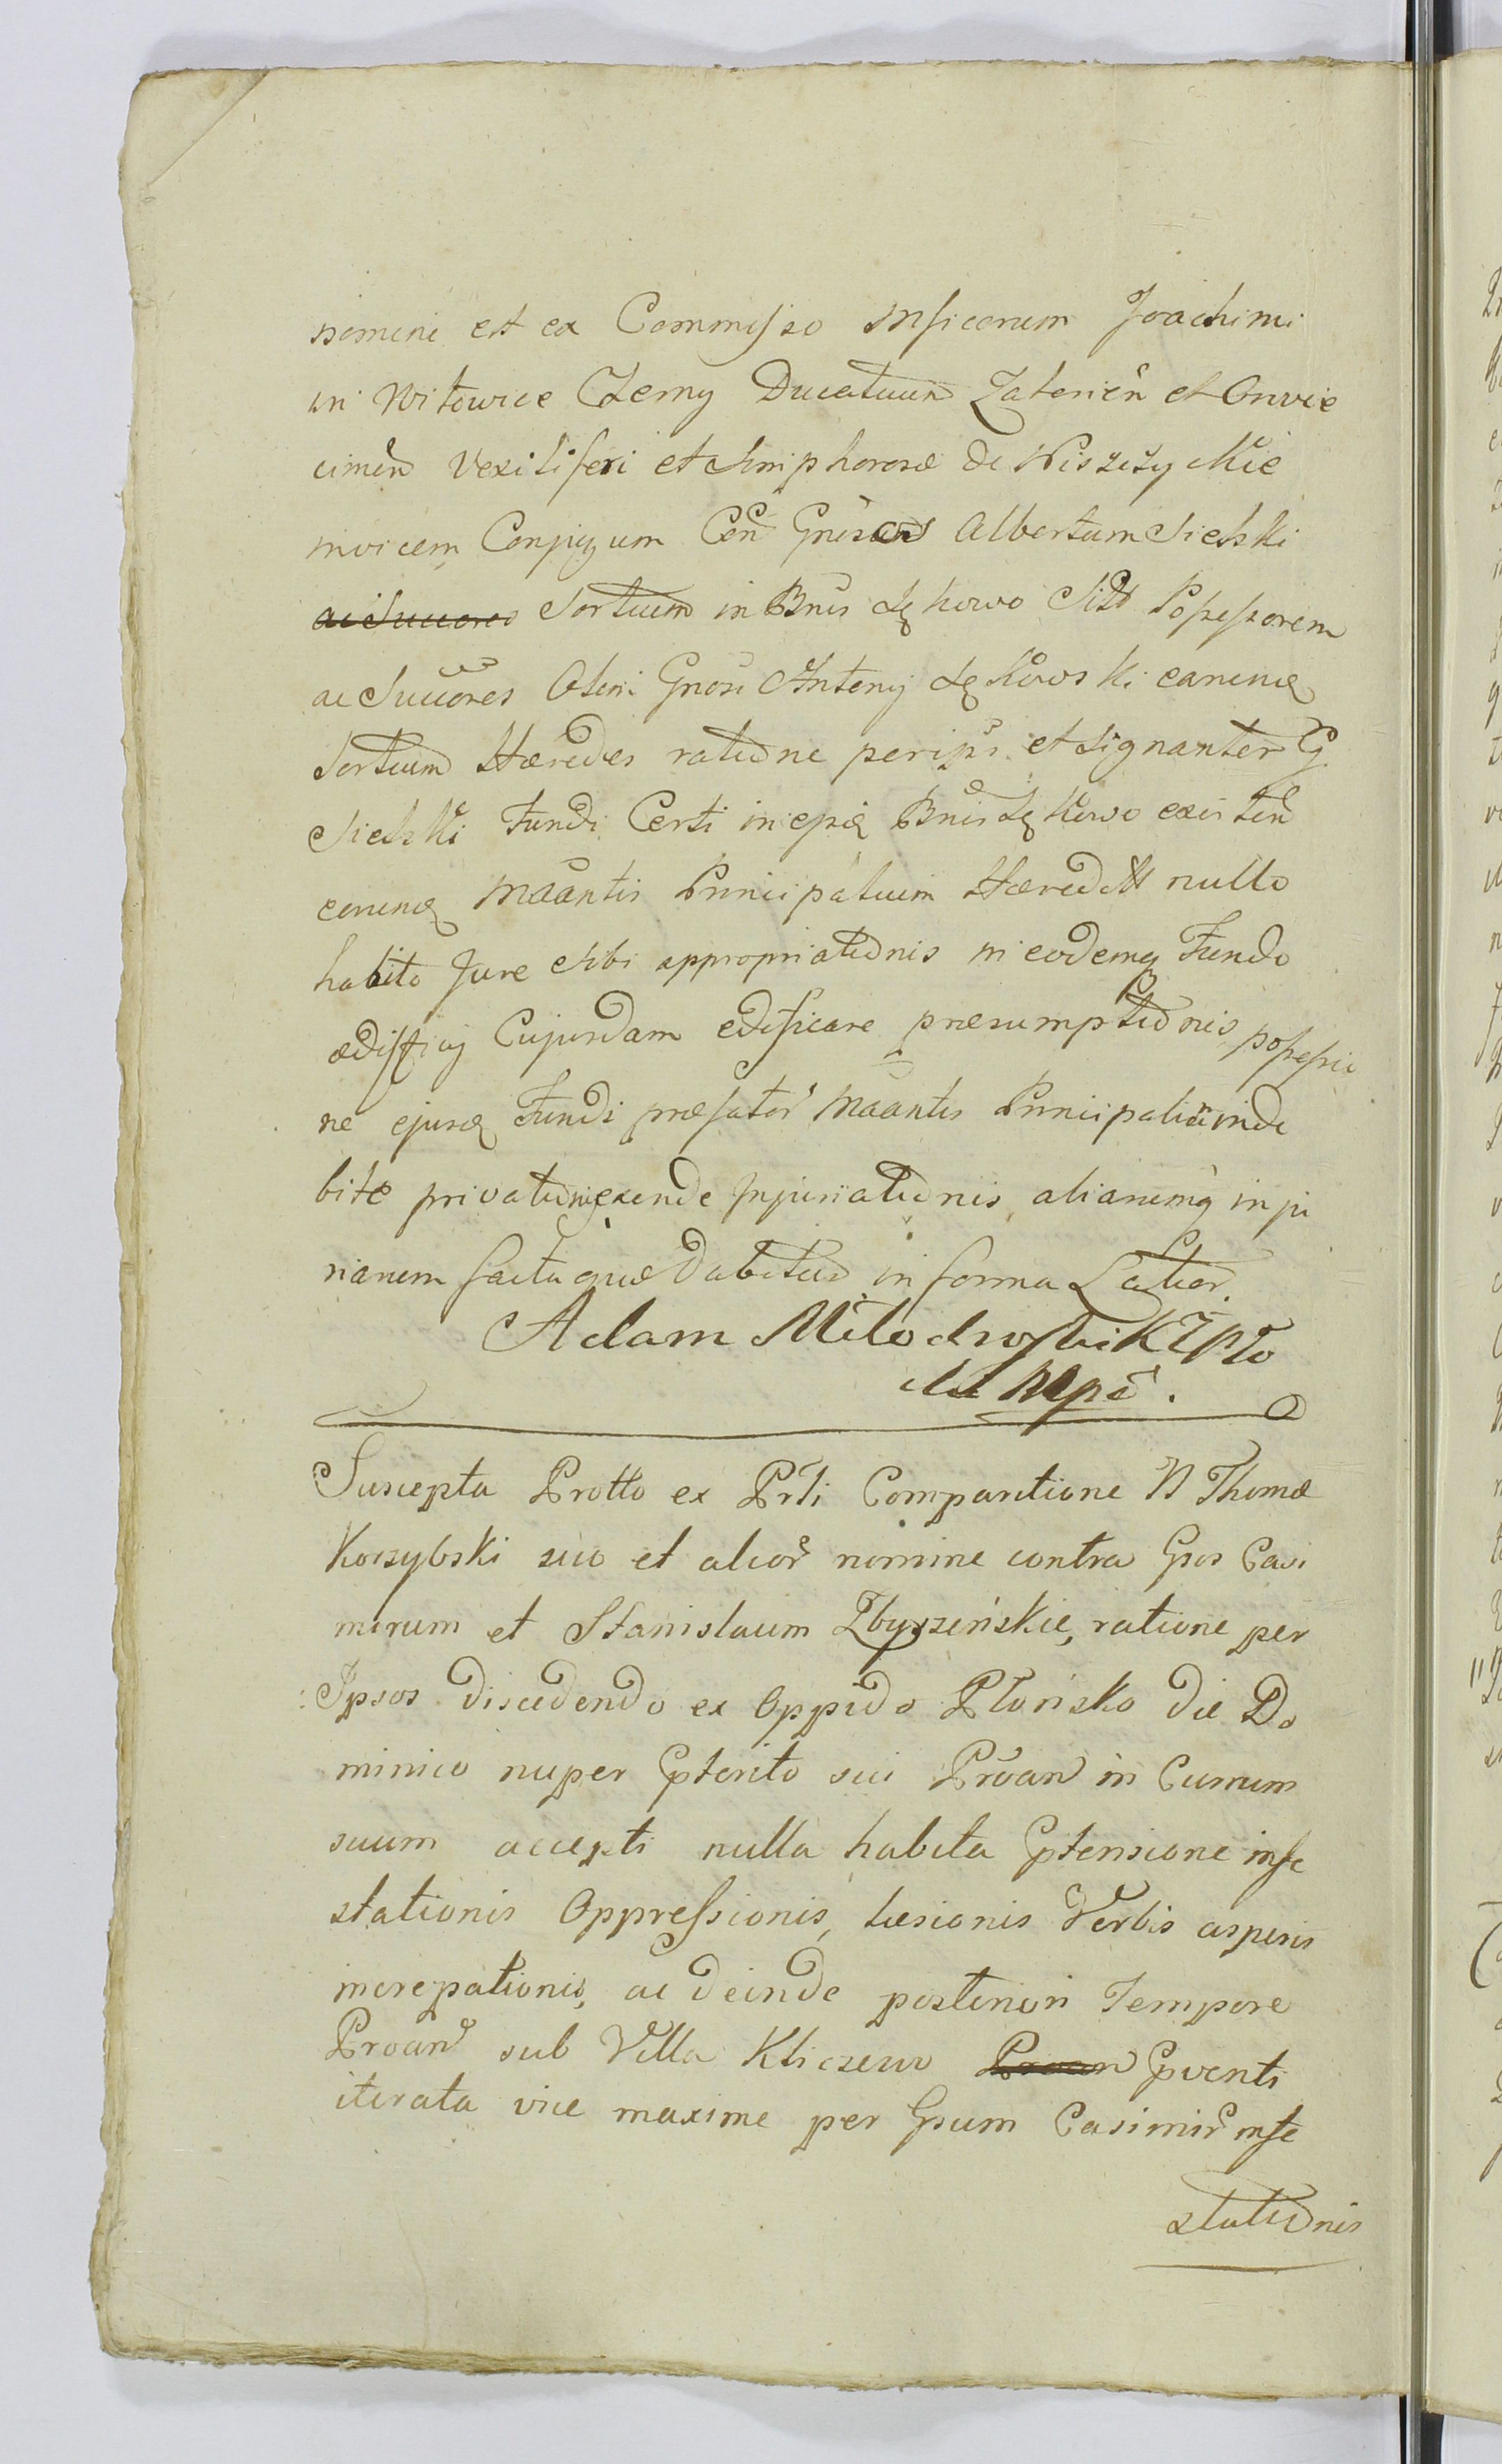 nomine et ex Commisso Mficorum Joachimi
in Witowice Czerny Ducatuum Zatorien et Oswie
cimen Vexiliferi et Simphorosæ de Wiszczyckie
invicem Conjugum Con Gnosos Albertum Sielski
ac Succores Sortium in Bnis Lękowo Sitt Possessorem
ac Succores Olim Gnosi Antonij Lękowski earundę
Sortium Hæredes ratione per ipsi et signanter G.
Sielski Fundi Certi in epię Bnis Lękowo existen
earundę Maantis Principalium Heredit nullo
habito Jure sibi appropriationis in eodemq Fundo
ædifficij Cujusdam edificare præsumptionis, possessio
ne ejusdę Fundi præfator Maantis Principalium inde
bitæ privationis exinde Injuriationis aliarumq inju
riarum facta quæ dabitur in forma Latior.
Adam Milodroski KZPło
Suscepta Protto ex Prti Comparitione N Thomæ
Korzybski suo et alior nomine contra Gsos Casi
mirum et Stanislaum Zbyszeńskie, ratione per
Ipsos discedendo ex Oppido Płońsko die Do
minico nuper Pterito sui Proan in Currum
suum accepti nulla habita Ptensione infe
stationis Oppressionis, læsionis Verbis asperis
increpationis, ac deinde posteriori Tempore
Proan sub Villa Kliczewo Proan Pventi
iterata vice maxime per Gsum Casimir infe
stationis